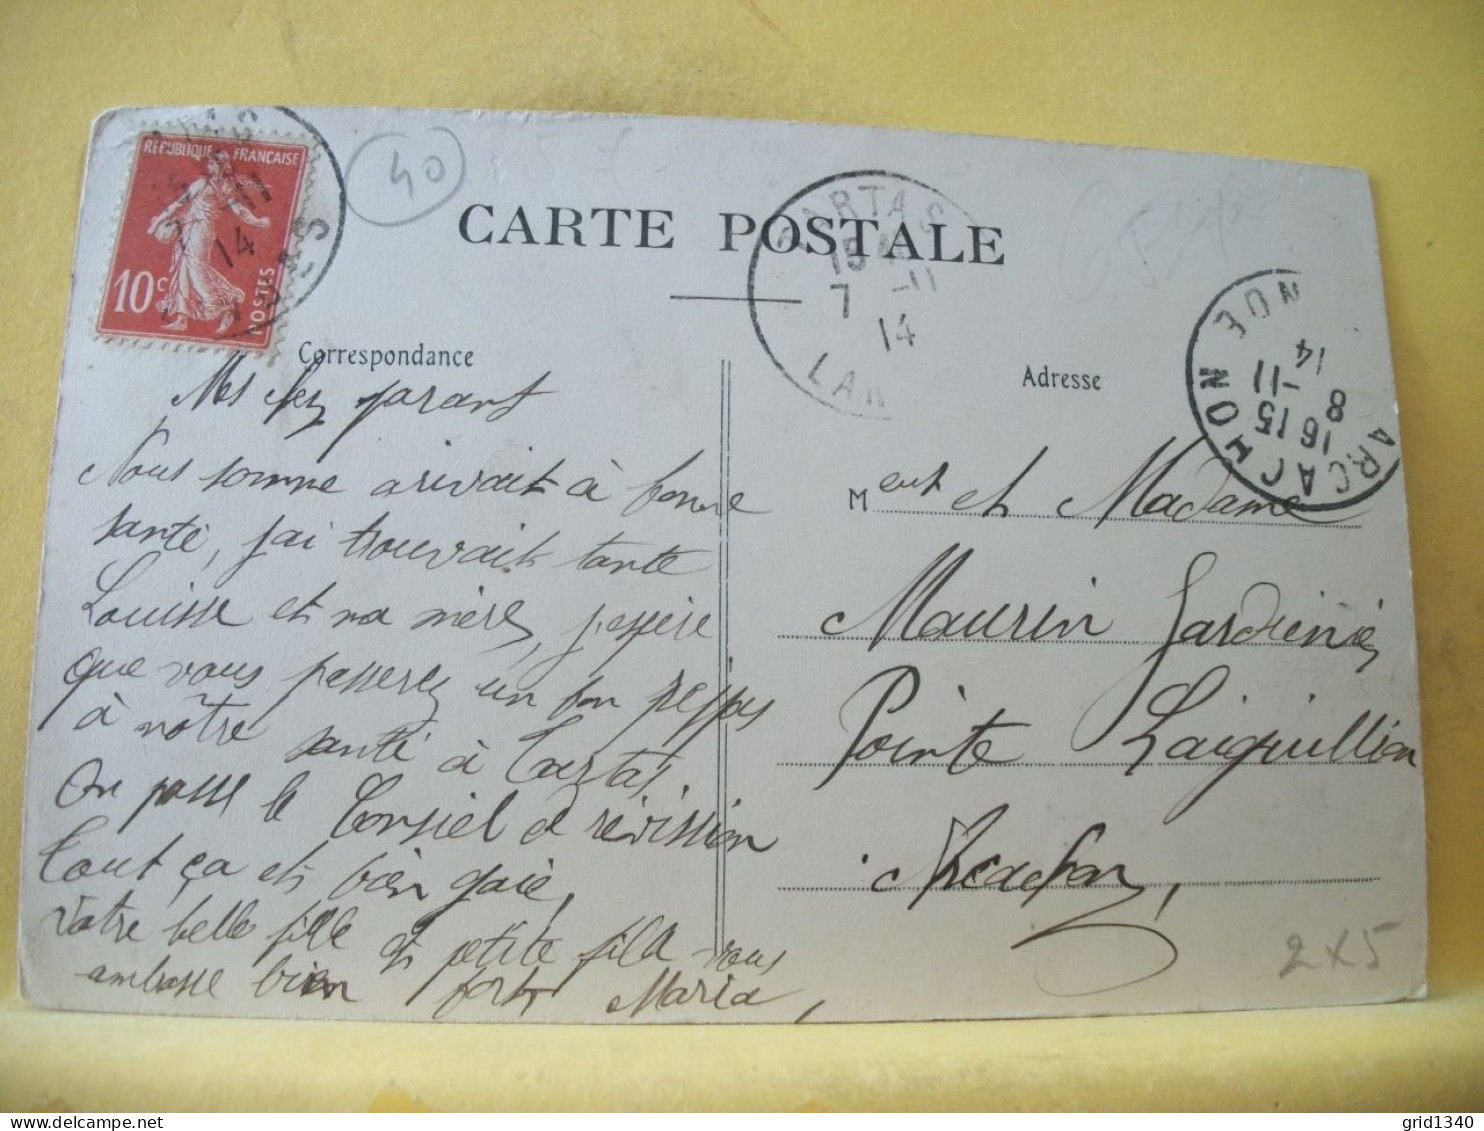 RÉPUBLIQUE FRANÇAISE
10c
POSTES
40
CARTE POSTALE
TARTAS
15
7 -11
14
LAN
ARCACHON
16 15
8 -11
14
Correspondance
Adresse
Mes parant
Nous somme arivait à bonne
santé, jai trouvait tante
Louisse et ma mère, jespère
que vous passerez un bon
à nôtre santé à Tartas
On passe le Consiel d révission
Tout ça et bien gaie,
Vôtre belle fille et pétite fill vous
ambrasse bien fort Maria,
Meur et Madame
Maurin Jardinié
Pointe Laiguillion
Arcachon,
2x5
grid1340